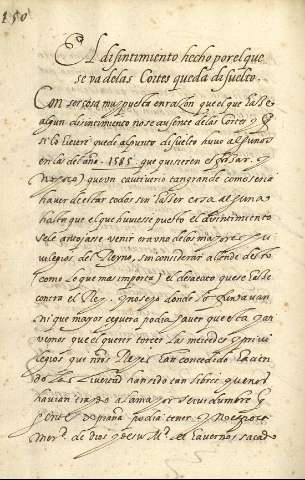 150
El disintimiento hecho por el que
se va de las Cortes queda disuelto.
Con ser cosa muy puesta en razon que el que hasse
algun disintimiento no se ausente de las Cortes y q
si lo hiciere quede al punto disuelto huvo algunos
en las del año. 1585. que quisieron glosar. y
que un cautiverio tan grande como seria
haver de estar todos sin hasser cosa alguna
hasta que el que huviesse puesto el disintimiento
se le antojasse venir era uno de los mayores pri
vilegios del Reyno, sin considerar a londe desto
(como lo que mas importa) el desacato que se hasse
contra el Rey. y no se yo donde lo
ni que mayor ceguera podia haver que esta pon
vemos que el querer torcer las mercedes y privi
legios que nros Reyes han concedido
do las han sido tan libres que nos
havian traydo a la mayor servidumbre q
gente podia tener y
mer. de dios y de su Mt. el havernos sacado